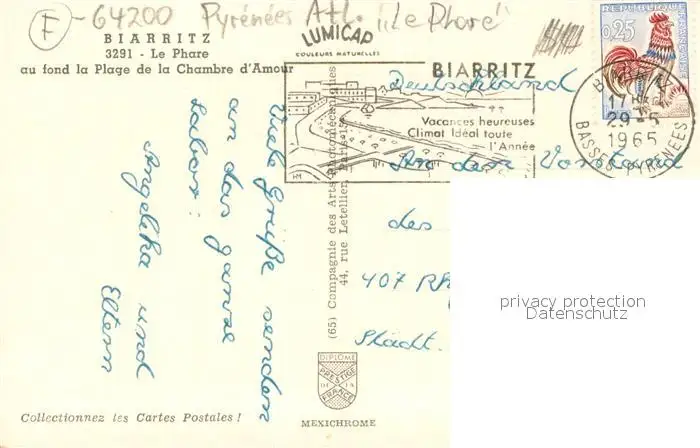 F - 64200 Pyrénées Atl. "Le Phare"
BIARRITZ
3291 - Le Phare
au fond la Plage de la Chambre d'Amour
LUMICAP
COULEURS NATURELLES
BIARRITZ
Vacances heureuses
Climat Idéal toute
l'Année
REPUBLIQUE FRANÇAISE
0,25
17H
29-5
1965
BASSES PYRENEES
Viele Grüße senden
an das ganze
Labor:
Angelika und
Eltern
(65) Compagnie des Arts Photomécaniques
44, rue Letellier, Paris-15
Deutschland
An den Vorstand
des
407
Städt.
privacy protection
Datenschutz
DIPLOME
PRESTIGE
DE LA
FRANCE
MEXICHROME
Collectionnez les Cartes Postales !